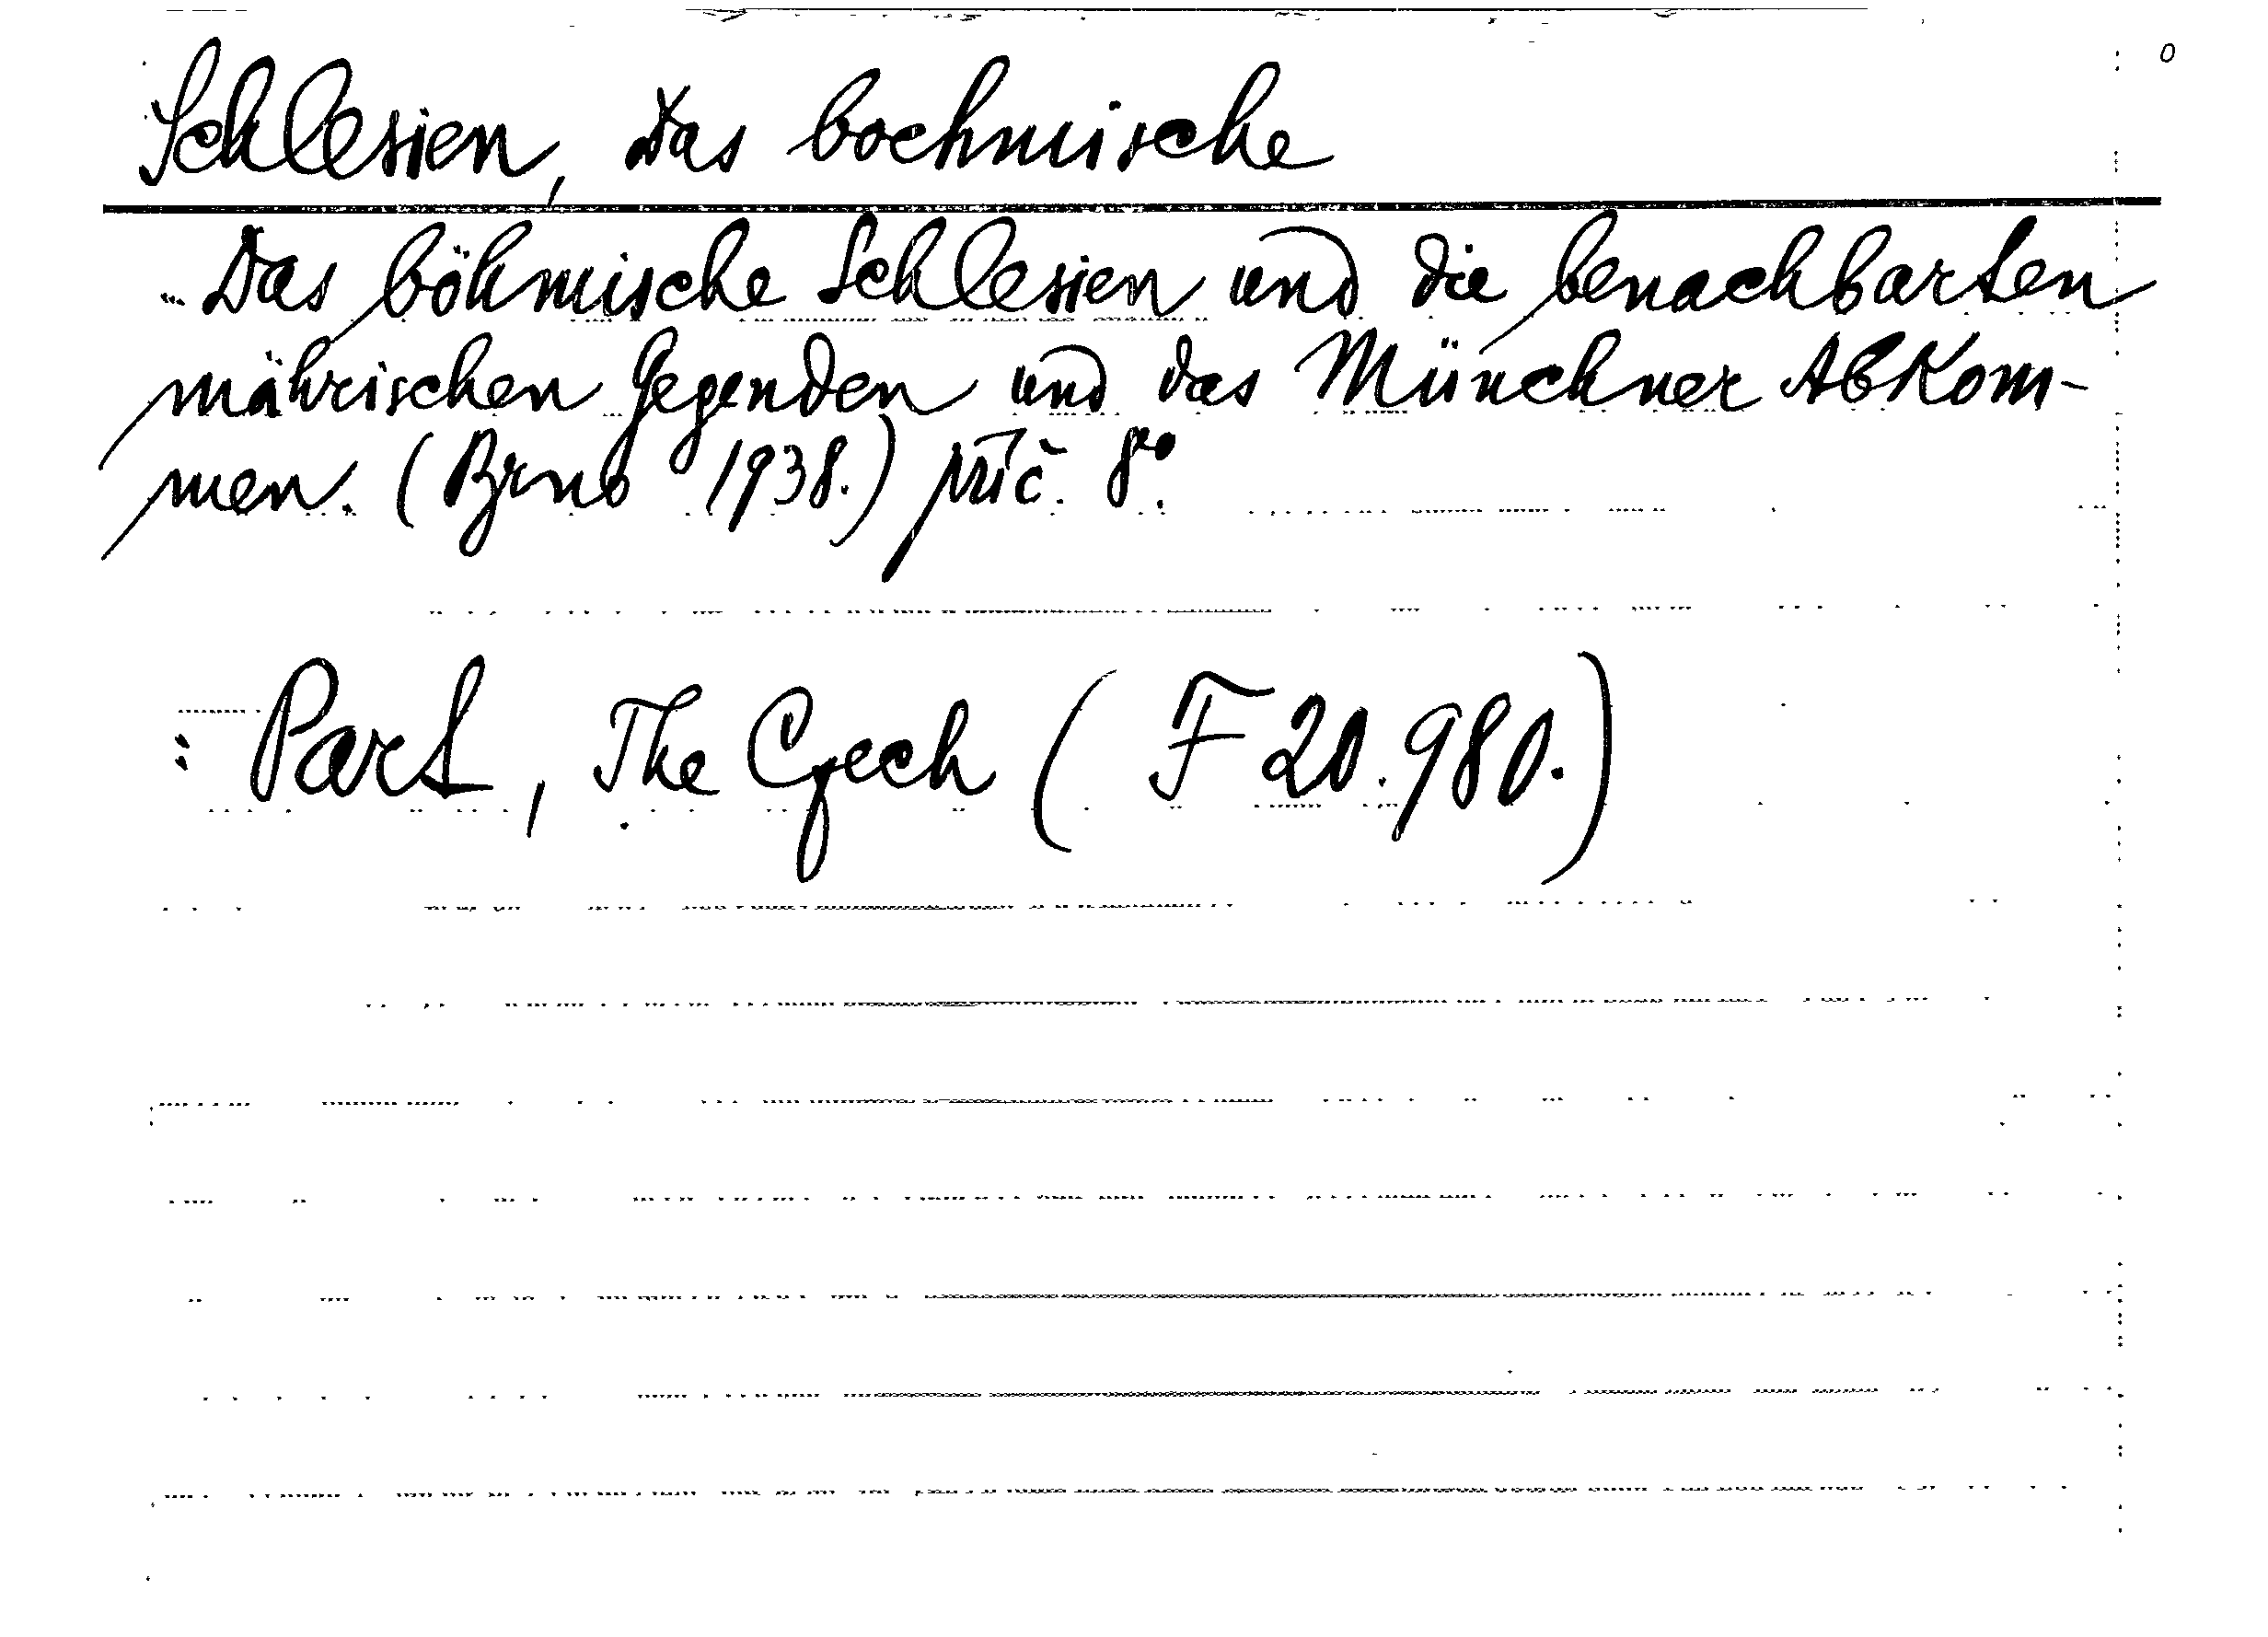 Schlesien, Das boehmische
Das böhmische Schlesien und die benachbarten
mährischen Gegenden und das Münchner Abkom-
men. (Brno 1938.) příč. 8°.
: Part, The Czech (F 20.980.)